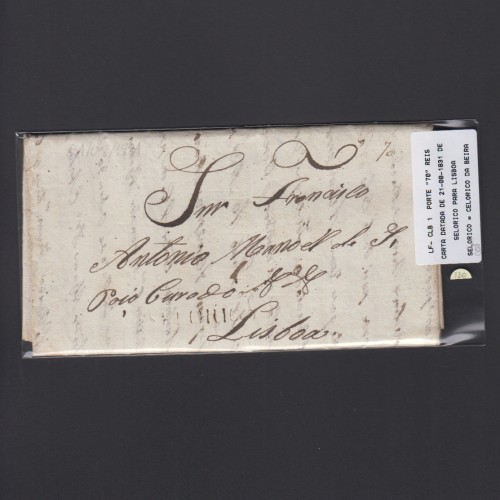 70
Snr Francisco
Antonio Manoel de S.
Poio Curado
Lisboa
LF- CLB 1 PORTE "70" REIS
CARTA DATADA DE 21-08-1831 DE
SELORICO PARA LISBOA
SELORICO = CELORICO DA BEIRA